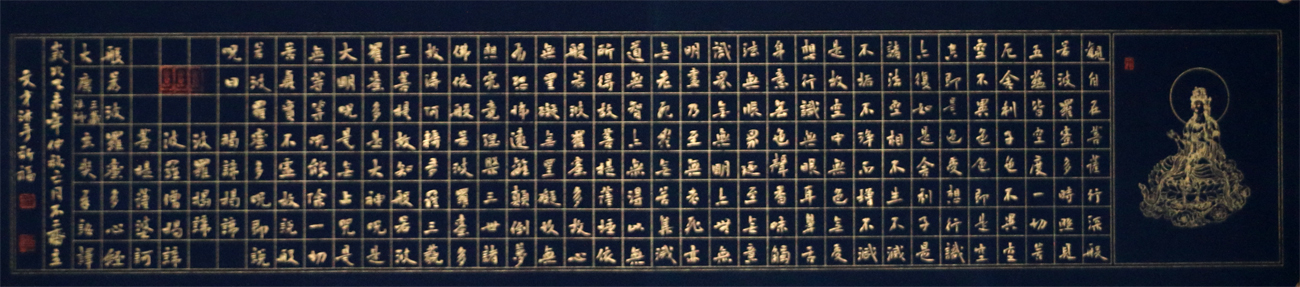 觀自在菩薩行深般
若波羅蜜多時照見
五蘊皆空度一切苦
厄舍利子色不異空
空不異色色即是空
空即是色受想行識
亦復如是舍利子是
諸法空相不生不滅
不垢不淨不增不減
是故空中無色無受
想行識無眼耳鼻舌
身意無色聲香味觸
法無眼界乃至無意
識界無無明亦無無
明盡乃至無老死亦
無老死盡無苦集滅
道無智亦無得以無
所得故菩提薩埵依
般若波羅蜜多故心
無罣礙無罣礙故無
有恐怖遠離顛倒夢
想究竟涅槃三世諸
佛依般若波羅蜜多
故得阿耨多羅三藐
三菩提故知般若波
羅蜜多是大神咒是
大明咒是無上咒是
無等等咒能除一切
苦真實不虛故說般
若波羅蜜多咒即說
咒曰 揭諦揭諦
波羅揭諦
波羅僧揭諦
菩提薩婆訶
般若波羅蜜多心經
大唐三藏法師玄奘奉詔譯
歲次乙未年仲秋月不齋主
文才沐手祈福